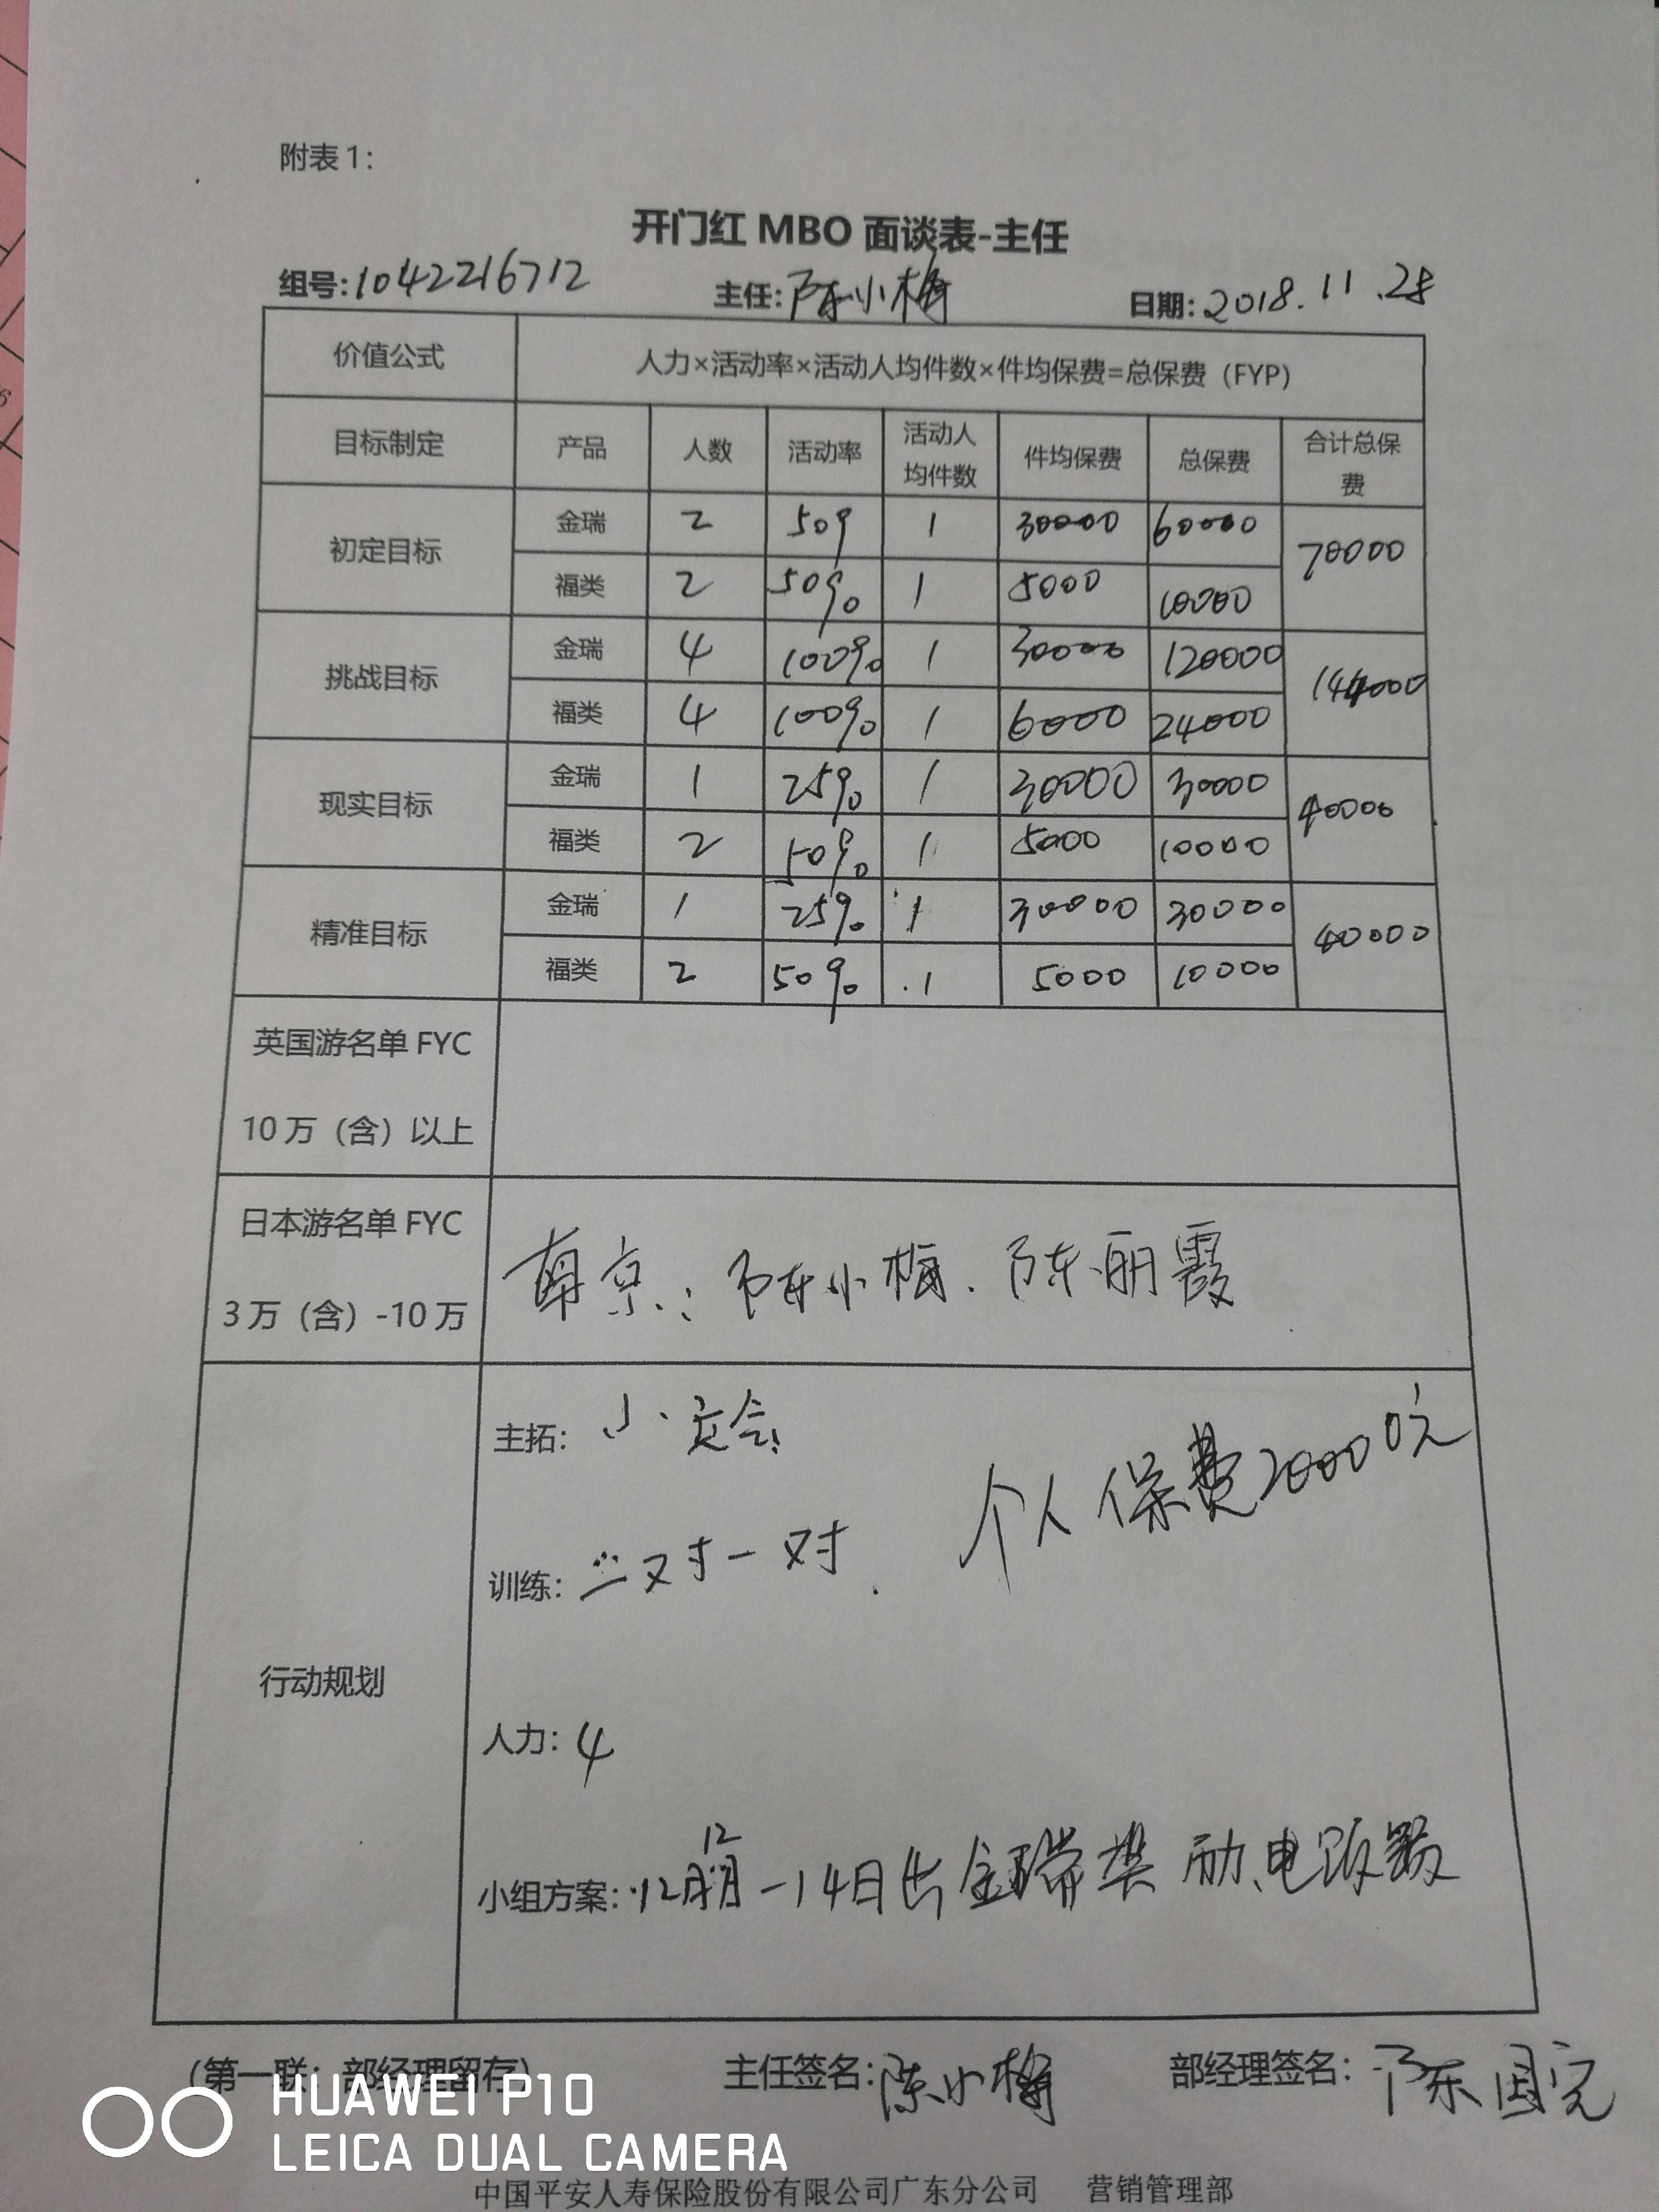 附表1：
开门红 MBO 面谈表-主任
组号:1042216712 主任:陈小梅 日期:2018.11.28
价值公式 人力×活动率×活动人均件数×件均保费=总保费（FYP）
目标制定 产品 人数 活动率 活动人均件数 件均保费 总保费 合计总保费
初定目标 金瑞 2 50% 1 30000 60000 70000
福类 2 50% 1 5000 10000
挑战目标 金瑞 4 100% 1 30000 120000 144000
福类 4 100% 1 6000 24000
现实目标 金瑞 1 25% 1 30000 30000 40000
福类 2 50% 1 5000 10000
精准目标 金瑞 1 25% 1 30000 30000 40000
福类 2 50% 1 5000 10000
英国游名单 FYC
10万（含）以上
日本游名单 FYC
3万（含）-10万
南京：陈小梅、陈丽霞
行动规划
主拓：小交会
训练：对一对
个人保费20000元
人力：4
小组方案：12月12-14日出金瑞奖励电饭煲
(第一联：部经理留存) 主任签名:陈小梅 部经理签名：陈国完
HUAWEI P10
LEICA DUAL CAMERA
中国平安人寿保险股份有限公司广东分公司 营销管理部